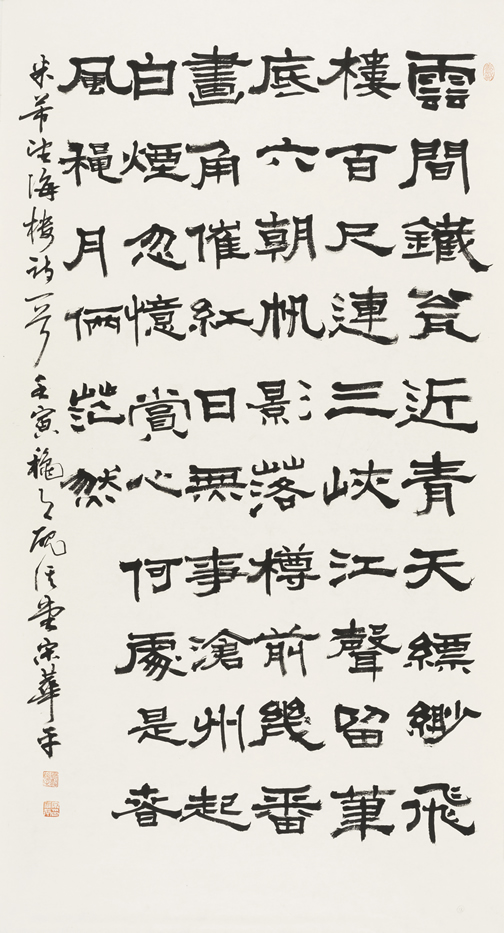 雲間鐵瓮近青天縹緲飛
樓百尺連三峽江聲留筆
底六朝帆影落樽前幾番
畫角催紅日無事滄州起
白煙忽憶賞心何處是春
風穐月倆茫然
米芾望海楼詩一首壬寅穐宋華平